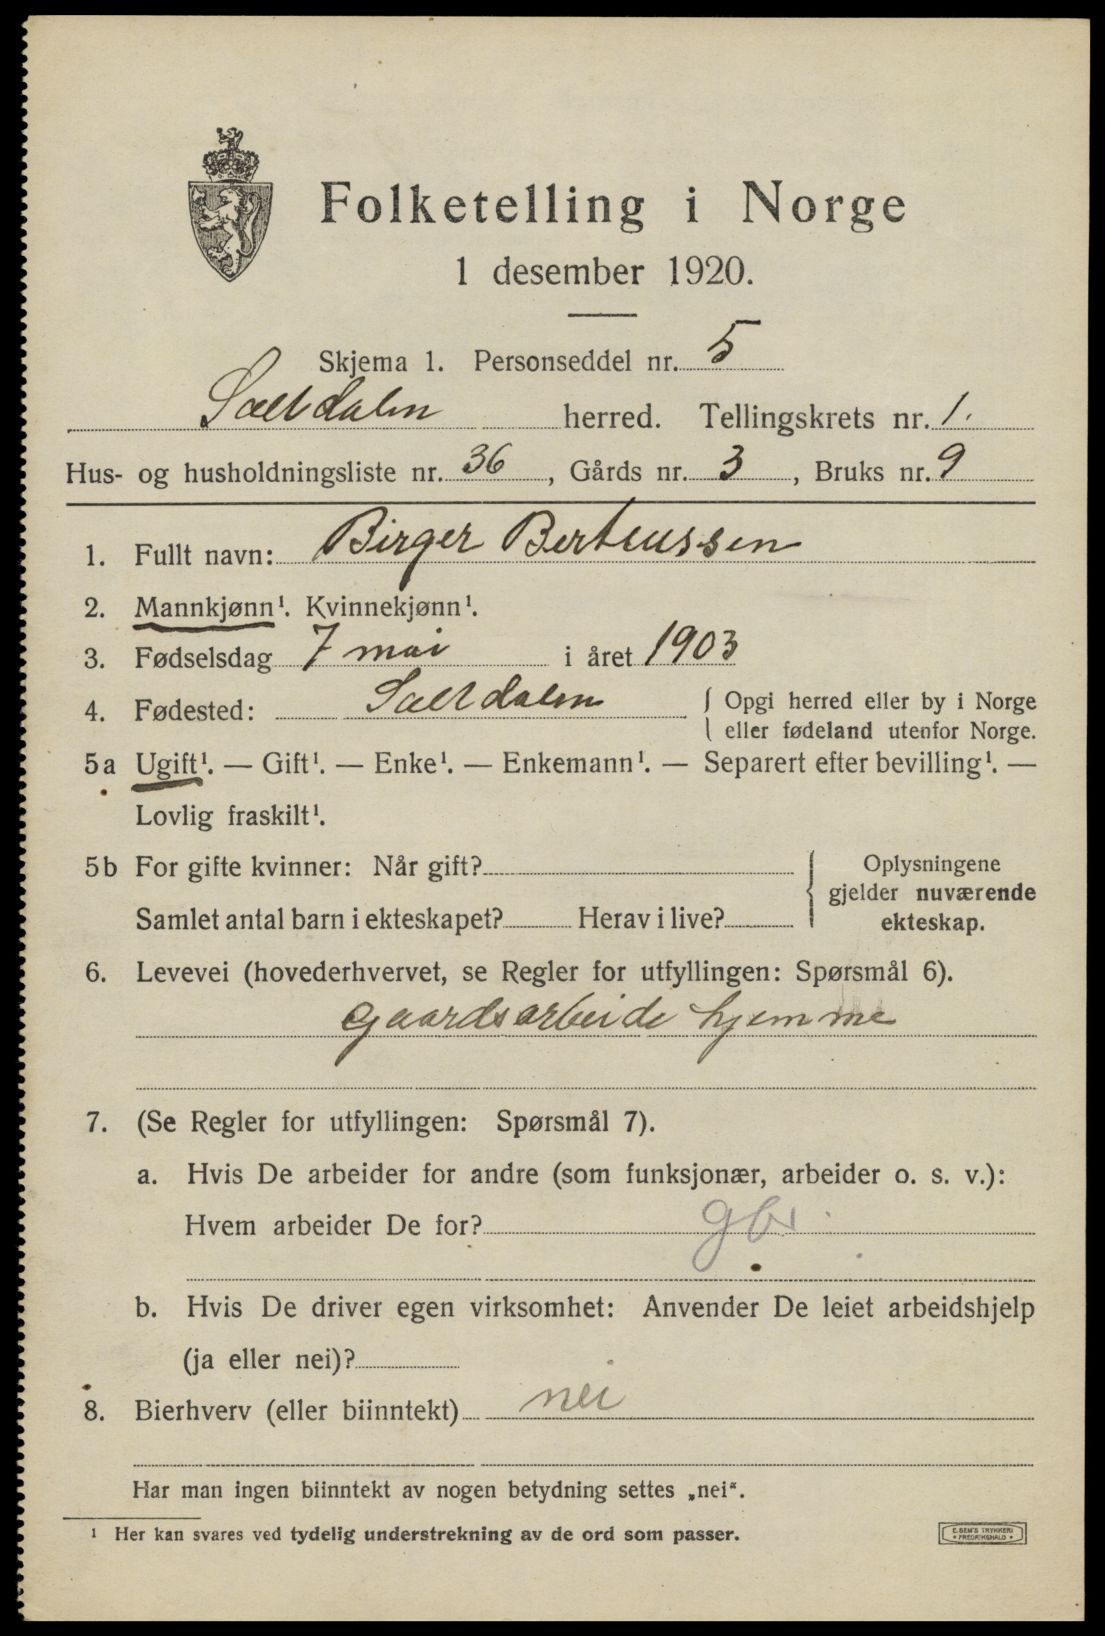 Folketelling i Norge
1 desember 1920.
Skjema 1. Personseddel nr. 5
Saltdalen herred. Tellingskrets nr. 1.
Hus- og husholdningsliste nr. 36, Gårds nr. 3, Bruks nr. 9
1. Fullt navn: Birger Berteussen
2. Mannkjønn¹. Kvinnekjønn¹.
3. Fødselsdag 7 mai i året 1903
4. Fødested: Saltdalen { Opgi herred eller by i Norge
eller fødeland utenfor Norge.
5a Ugift¹. — Gift¹. — Enke¹. — Enkemann¹. — Separert efter bevilling¹. —
Lovlig fraskilt¹.
5b For gifte kvinner: Når gift? { Oplysningene
gjelder nuværende
Samlet antal barn i ekteskapet? Herav i live? ekteskap.
6. Levevei (hovederhvervet, se Regler for utfyllingen: Spørsmål 6).
Gaardsarbeide hjemme
7. (Se Regler for utfyllingen: Spørsmål 7).
a. Hvis De arbeider for andre (som funksjonær, arbeider o. s. v.):
Hvem arbeider De for? gbr.
b. Hvis De driver egen virksomhet: Anvender De leiet arbeidshjelp
(ja eller nei)?
8. Bierhverv (eller biinntekt) nei
Har man ingen biinntekt av nogen betydning settes „nei".
¹ Her kan svares ved tydelig understrekning av de ord som passer.
E. SEM'S TRYKKERI
• FREDRIKSHALD •